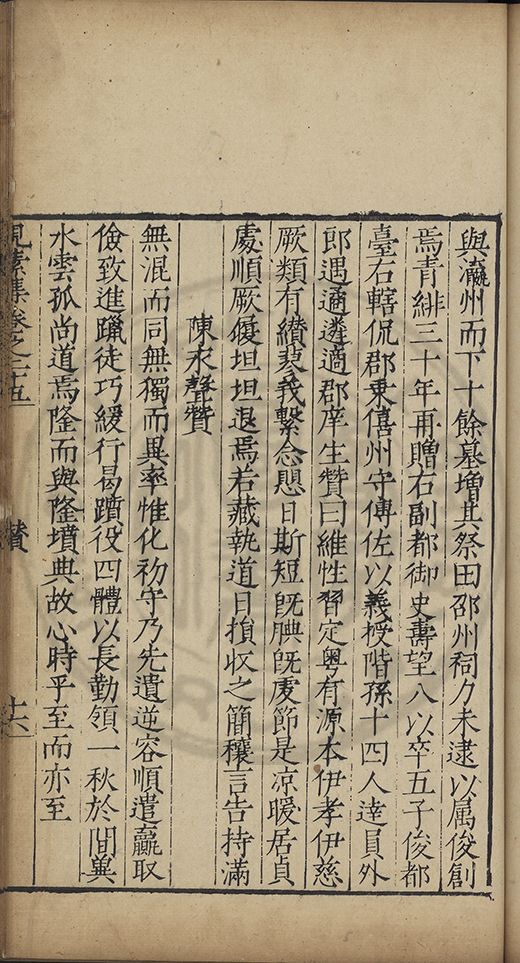 與瀛州而下十餘墓增其祭田邵州祠夕未逮以属俊創
焉青緋三十年再贈右副都御史壽望八以卒五子俊都
臺右轄侃郡東僖州守傅佐以義授階孫十四人達員外
郎遇適遴適郡庠生贊曰維性習定粤有源本伊孝伊慈
厥類有纘蓼義繫念慰日斯短旣腆旣虔節是凉暖居貞
處順厥復坦坦退焉若藏執道日損收之簡穰言告持滿
陳永聲贊
無混而同無獨而異率惟化初守乃先遺逆容順遣羸取
儉致進躐徒巧緩行曷躓役四體以長勤領一秋於間冀
水雲孤尚道焉隆而與隆墳典故心時乎至而亦至
見素集卷之二十五
贊
十六